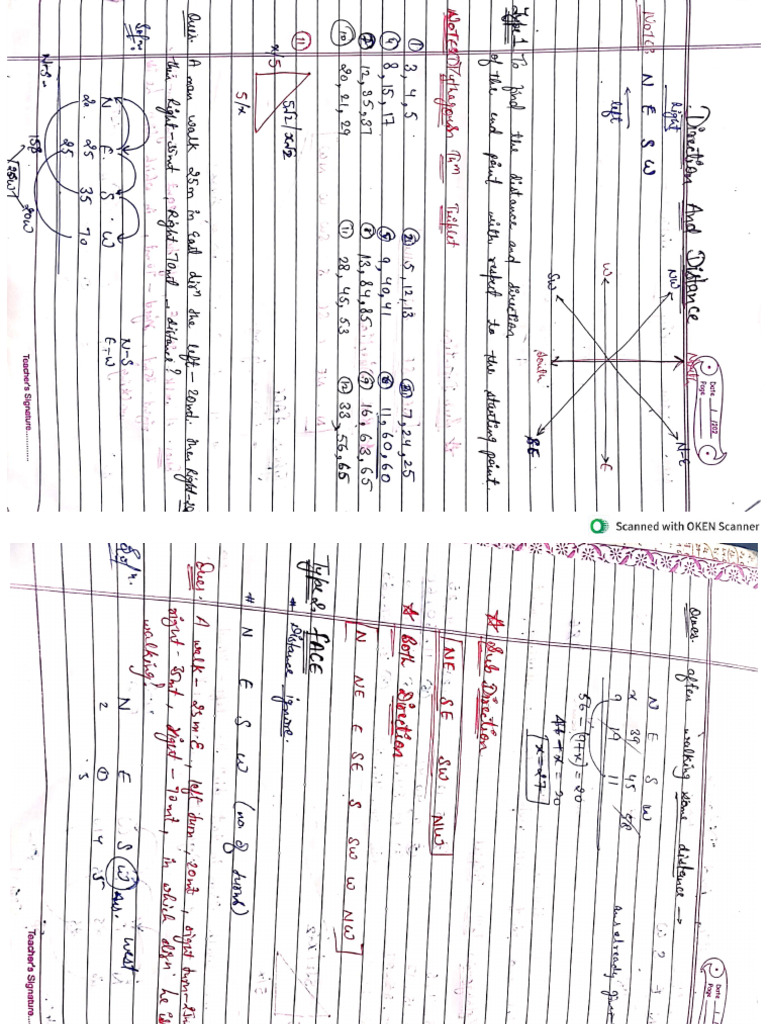 Direction And Distance
Date __/__/202
Page
Note:
Right
N E S W
left
North
NW
N-E
W
E
SW
South
SE
Type 1 To find the distance and direction
of the end point with respect to the starting point.
Notes (1) Pythagorus Thm Triplet
① 3, 4, 5
② 5, 12, 13
③ 7, 24, 25
④ 8, 15, 17
⑤ 9, 40, 41
⑥ 11, 60, 60
⑦ 12, 35, 37
⑧ 13, 84, 85
⑨ 16, 63, 65
⑩ 20, 21, 29
⑪ 28, 45, 53
⑫ 33, 56, 65
⑪
x/5
5√2/x√2
5/x
Ques. A man walk 25m in East dirn the left - 20mt. then Right-
this Right- Right 70mt → distance?
Soln:
N E S W
2. 25 35 70
25
N-S
E-W
N-S-
Teacher's Signature.............
Scanned with OKEN Scanner
Date __/__/
Page
Ques. after walking some distance →
N E S W
x 39 45 58
9 19 11
ans already
56-(9+x)=20
46+x=20
x=27
☆ Sub Direction
NE SE SW NW
☆ Both Direction
N NE E SE S SW W NW
Type 2. FACE
* Distance ignore.
# N E S W (no. of turns)
Ques. A walk - 25m E, left turn, 20mt, right turn-
right - 35mt, right - 70mt, in which dirn he is
walking?
Soln.
N E S W Ans. West
2 ① 4 3
5
Teacher's Signature....